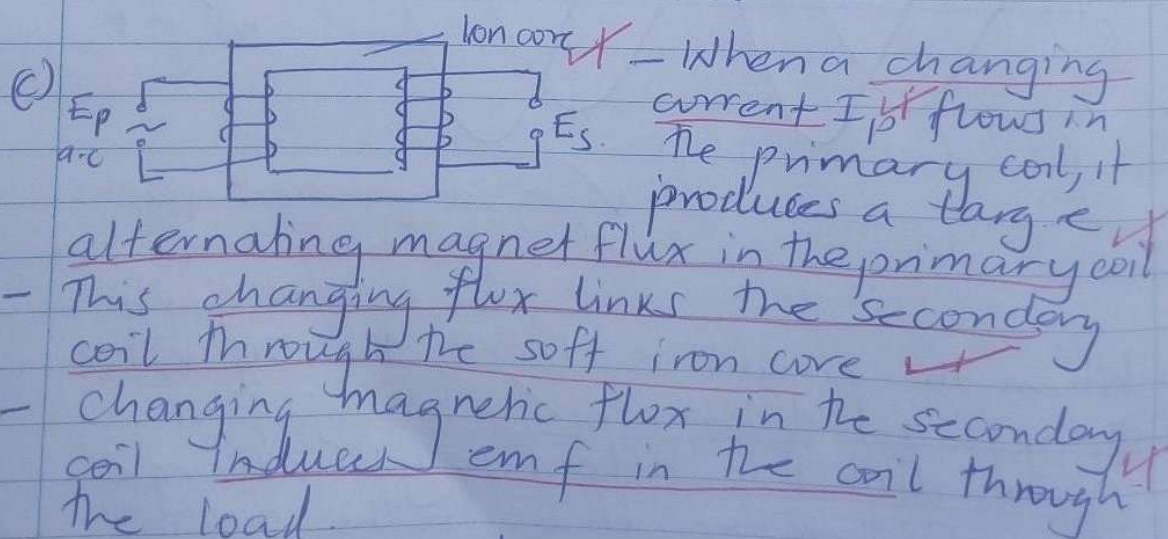 Ion core - When a changing
c) Ep current Ip flows in
a.c Es. the primary coil, it
produces a targe
alternating magnet flux in the primary coil
- This changing flux links the secondary
coil through the soft iron core
- changing magnetic flux in the secondary
coil induces emf in the coil through
the load.